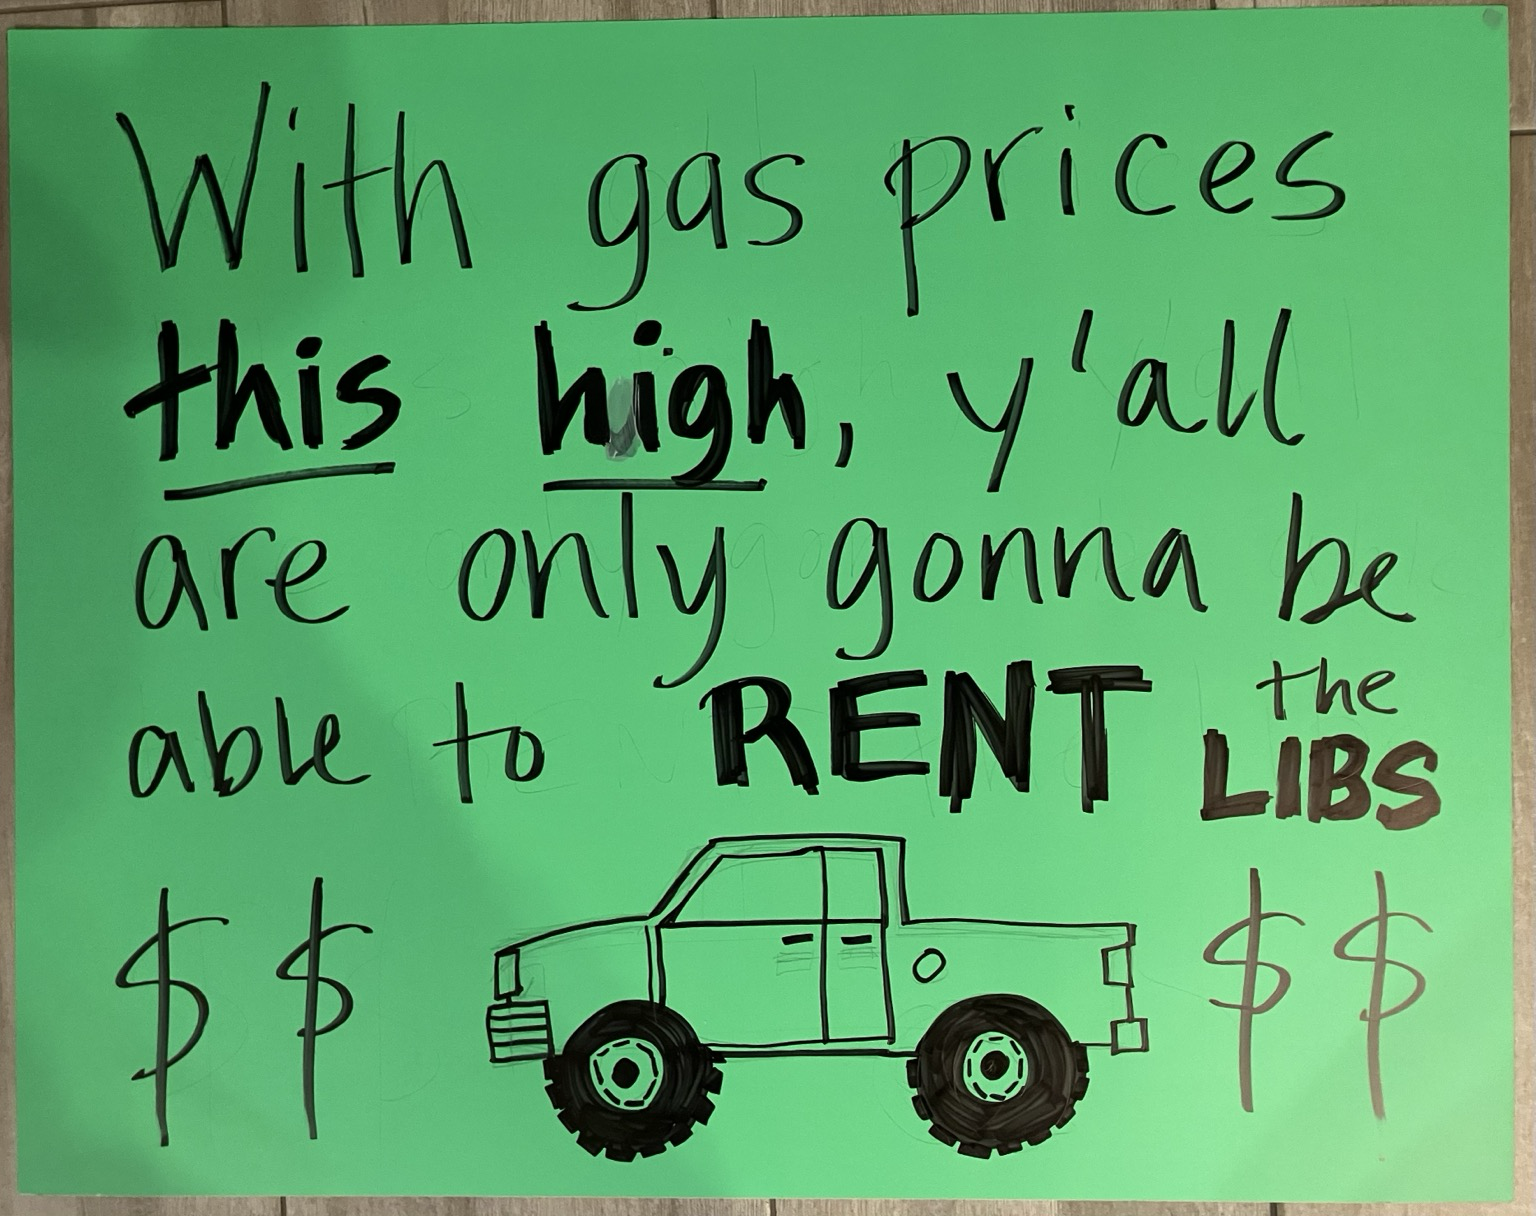 With gas prices
this high, y'all
are only gonna be
able to RENT the LIBS
$ $ $ $